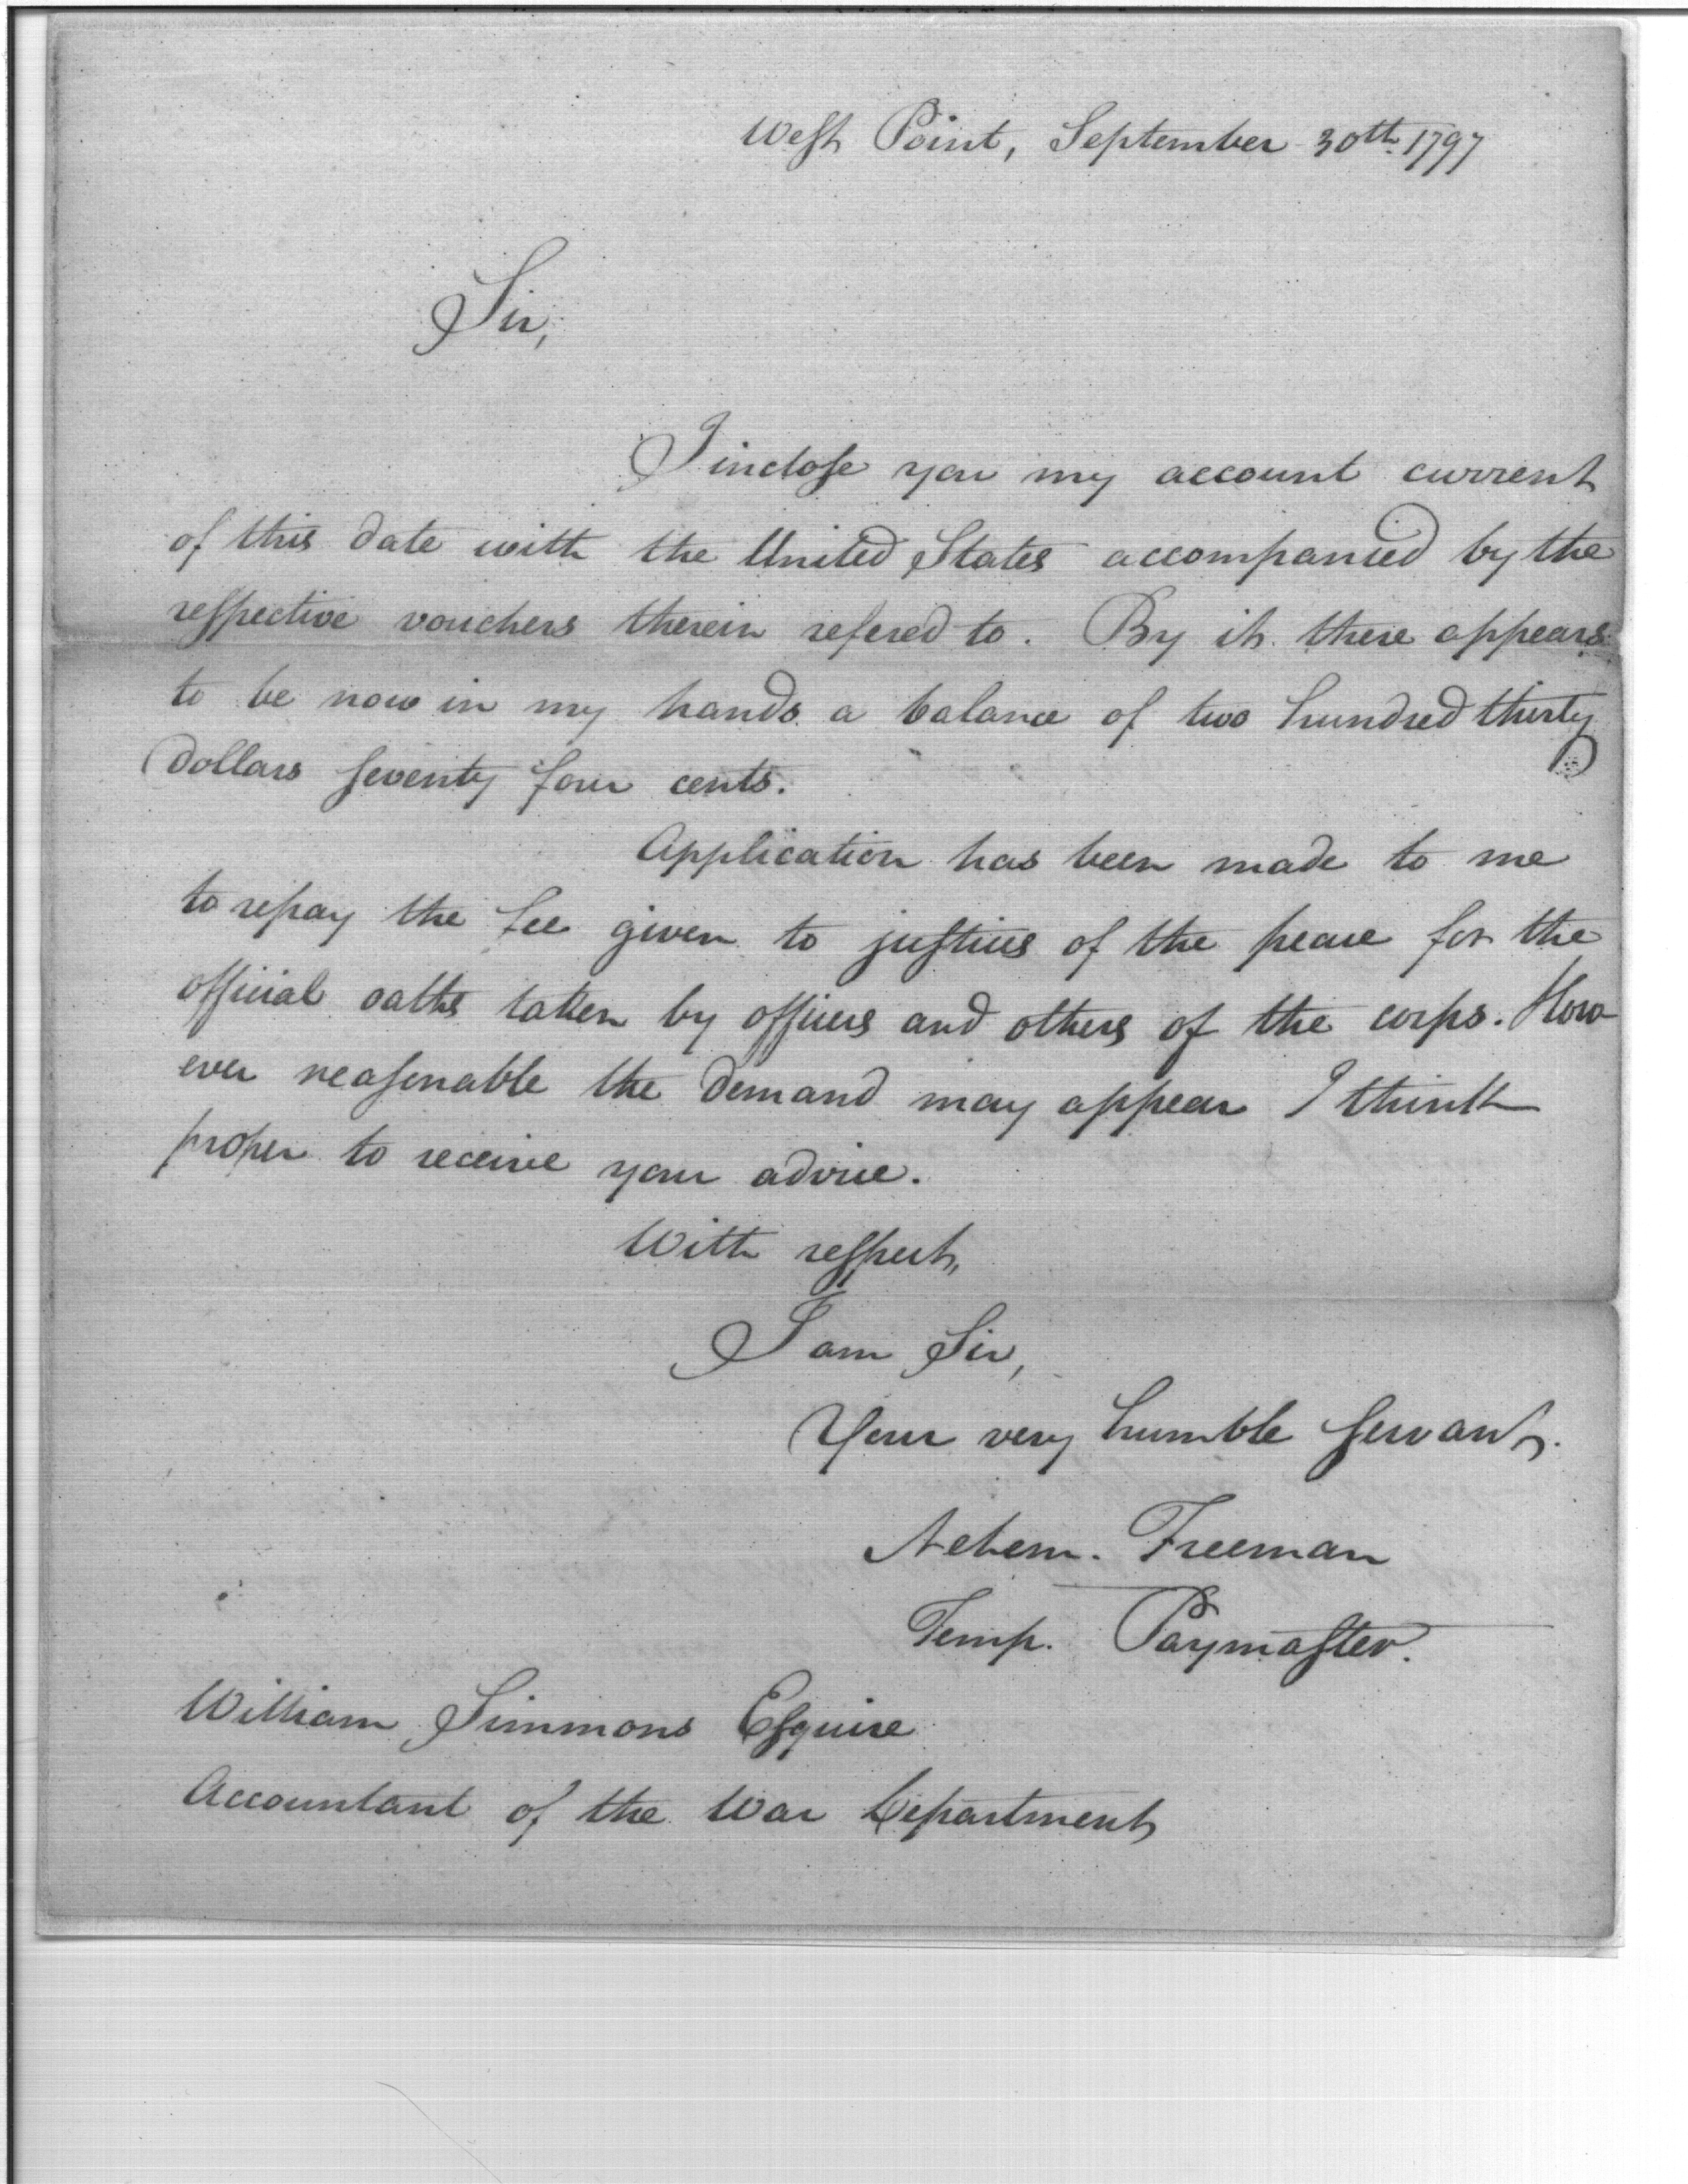 West Point, September 30th. 1797
Sir,
I inclose you my account current
of this date with the United States accompanied by the
respective vouchers therein refered to. By it there appears
to be now in my hands a balance of two hundred thirty
dollars seventy four cents.
Application has been made to me
to repay the fee given to justices of the peace for the
official oaths taken by officers and others of the corps. How
ever reasonable the demand may appear I think
proper to receive your advice.
With respect,
I am Sir,
Your very humble servant.
Nehem. Freeman
Temp. Paymaster.
William Simmons Esquire
Accountant of the War Department